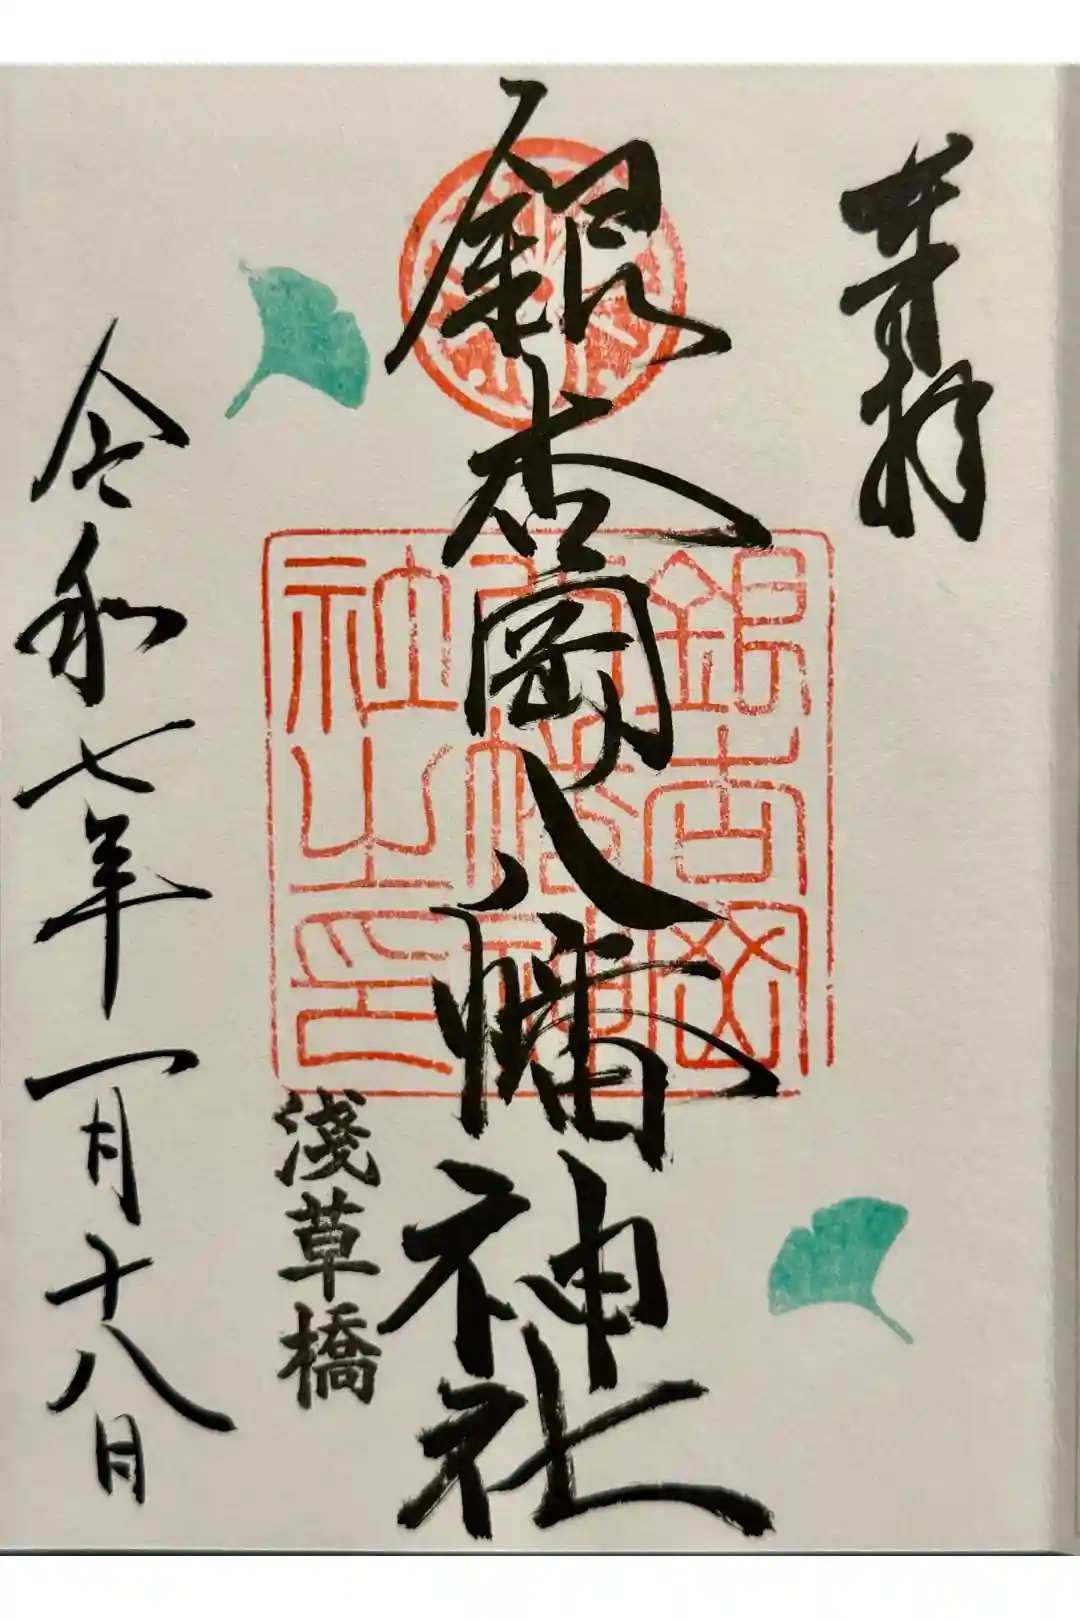 奉拝
銀杏岡八幡神社
銀杏岡
社之印
淺草橋
令和七年一月十八日